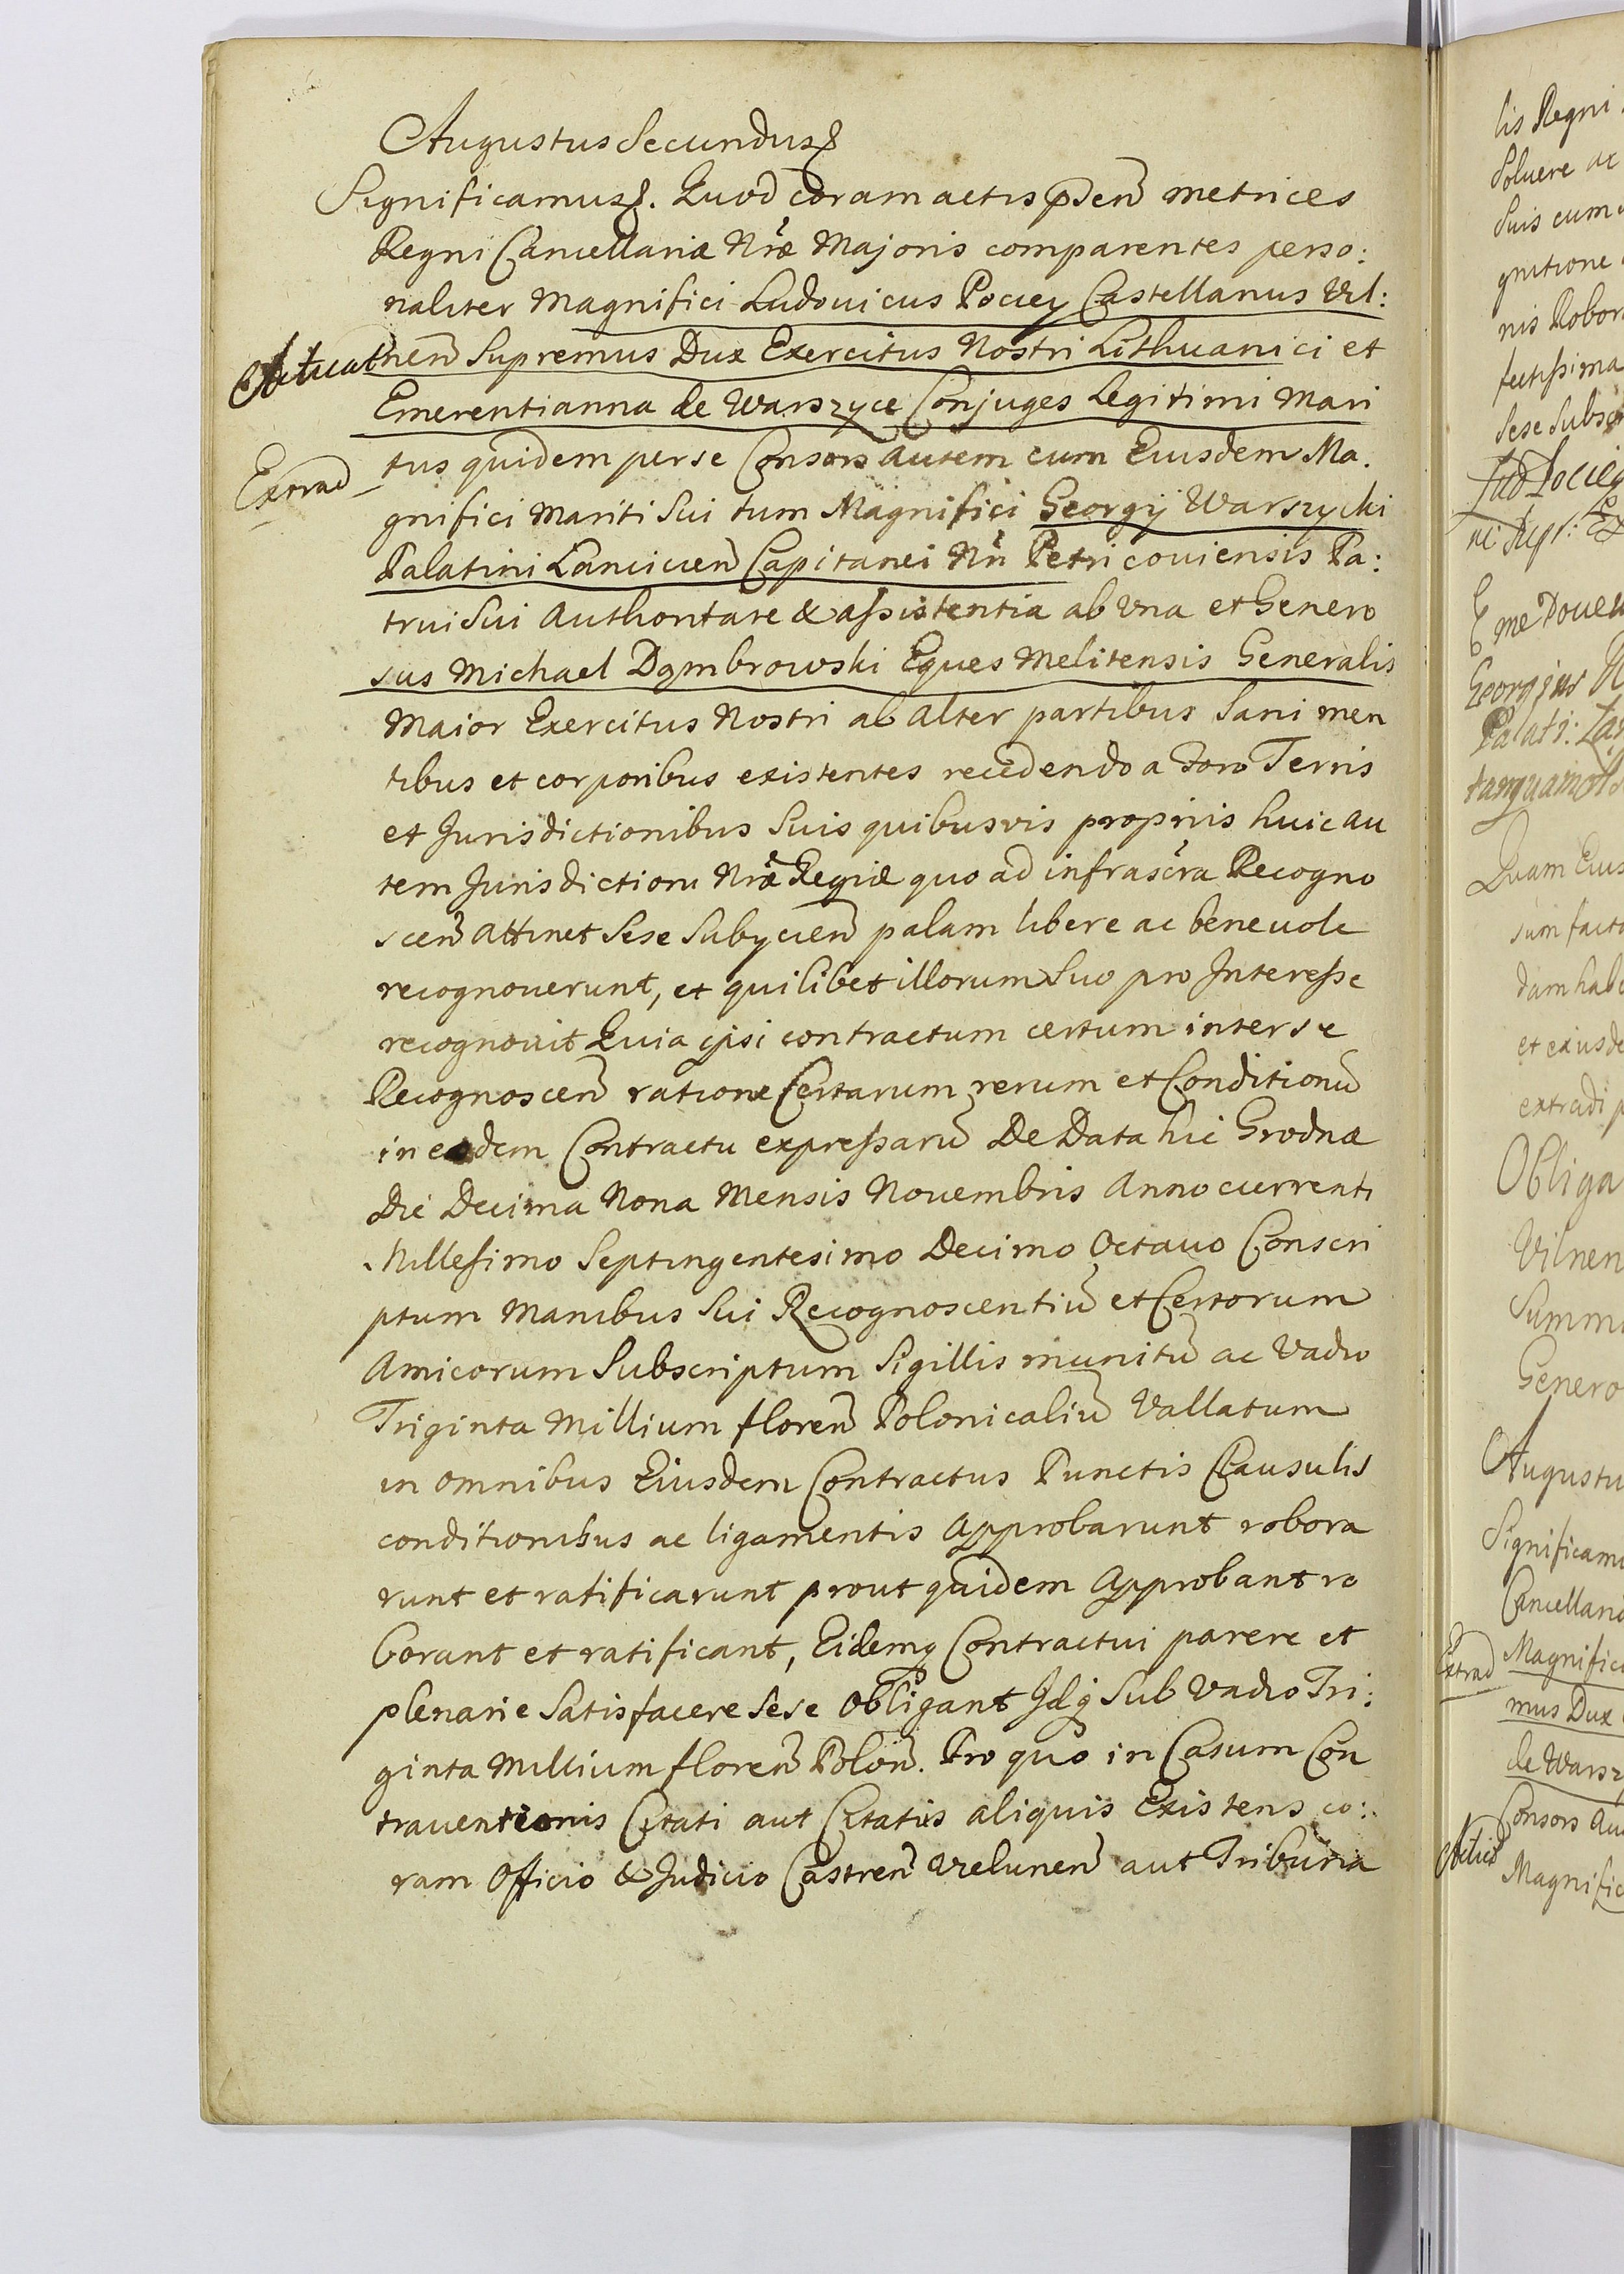 Augustus Secundus
Significamus. Quod coram actis pñsen metrices
Regni Cancellariæ Nræ Majoris comparentes perso:
naliter Magnifici Ludouicus Pociey Castellanus Vil:
Acticat
nen Supremus Dux Exercitus Nostri Lithuanici et
Emerentianna de Warszyce Conjuges Legitimi Mari
Extrad
tus quidem per se Consors autem cum Eiusdem Ma.
gnifici Mariti Sui tum Magnifici Georgij Warszycki
Palatini Lancicien Capitanei Nri Petricouiensis Pa:
trui Sui Authoritate & assistentia ab Una et Genero
sus Michael Dąmbrowski Eques Melitensis Generalis
Maior Exercitus Nostri ab alter partibus Sani men
tibus et corporibus existentes recedendo a Foro Terris
et Jurisdictionibus Suis quibusvis proprijs huic au
tem Jurisdictioni Nræ Regiæ quo ad infrascra Recogno
scen attinet Sese Subycien palam libere ac beneuole
recognouerunt, et quilibet illorum Suo pro Interesse
recognouit Quia ipsi contractum certum inter se
Recognoscen ratione Certarum rerum et Conditionũ
in eodem Contractu expressarũ De Data hic Grodnæ
Die Decima Nona Mensis Nouembris Anno currenti
Millesimo Septingentesimo Decimo Octauo Conscri
ptum Manibus Sui Recognoscentiũ et Certorum
Amicorum Subscriptum Sigillis munitũ ac Vadio
Triginta Millium floren Polonicaliũ Vallatum
in omnibus Eiusdem Contractus Punctis Clausulis
conditionibus ac ligamentis Approbarunt robora
runt et ratificarunt prout quidem Approbant ro
borant et ratificant, Eidemq Contractui parere et
plenarie Satisfacere Sese Obligant Idq Sub Vadio Tri:
ginta Millium floren Polon. Pro quo in Casum Con
trauentionis Citati aut Citatis aliquis Existens co:
ram Officio & Judicio Castren Velunen aut Tribuna
lis Regni
Soluere ac
Suis cum
gnitione
nis Robor
fectissima
Sese Subsc
Lud Pociey
Supr: Ex
me Doueu
Georgius
Palati: Lan
tanquam
Quam Eius
sum facta
dam habe
et eiusde
extradi p
Obliga
Vilnen
Summ
Genero
Augustu
Significam
Cancellariæ
Extrad
Magnific
mus Dux
de Warsz
Consors Au
Magnific